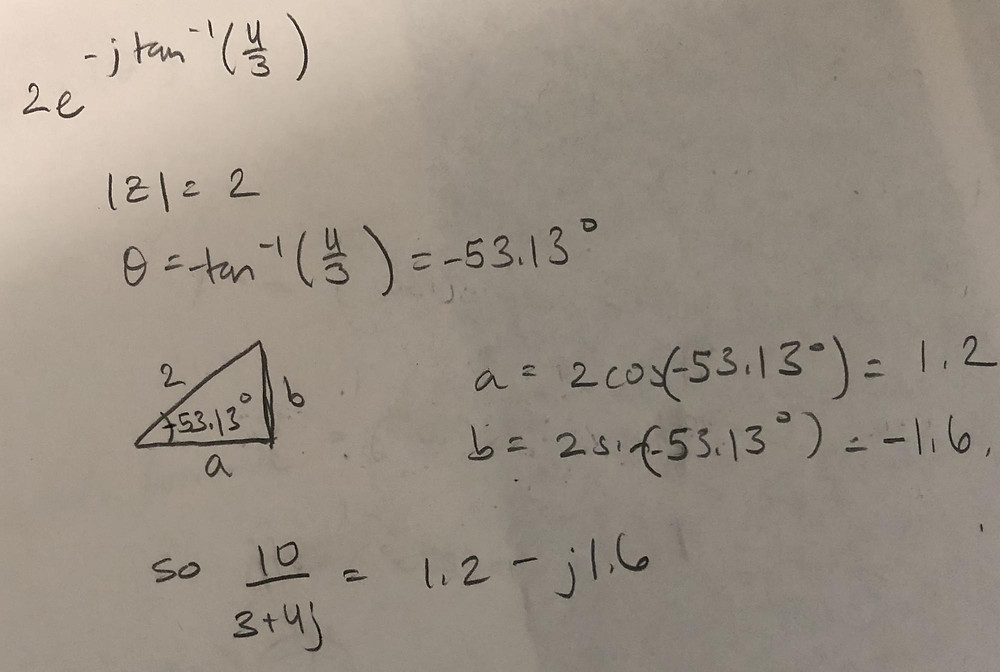 2e^{-j tan⁻¹(4/3)}
|z| = 2
θ = -tan⁻¹(4/3) = -53.13°
2
-53.13°
b
a
a = 2cos(-53.13°) = 1.2
b = 2sin(-53.13°) = -1.6,
so 10/(3+4j) = 1.2 - j1.6